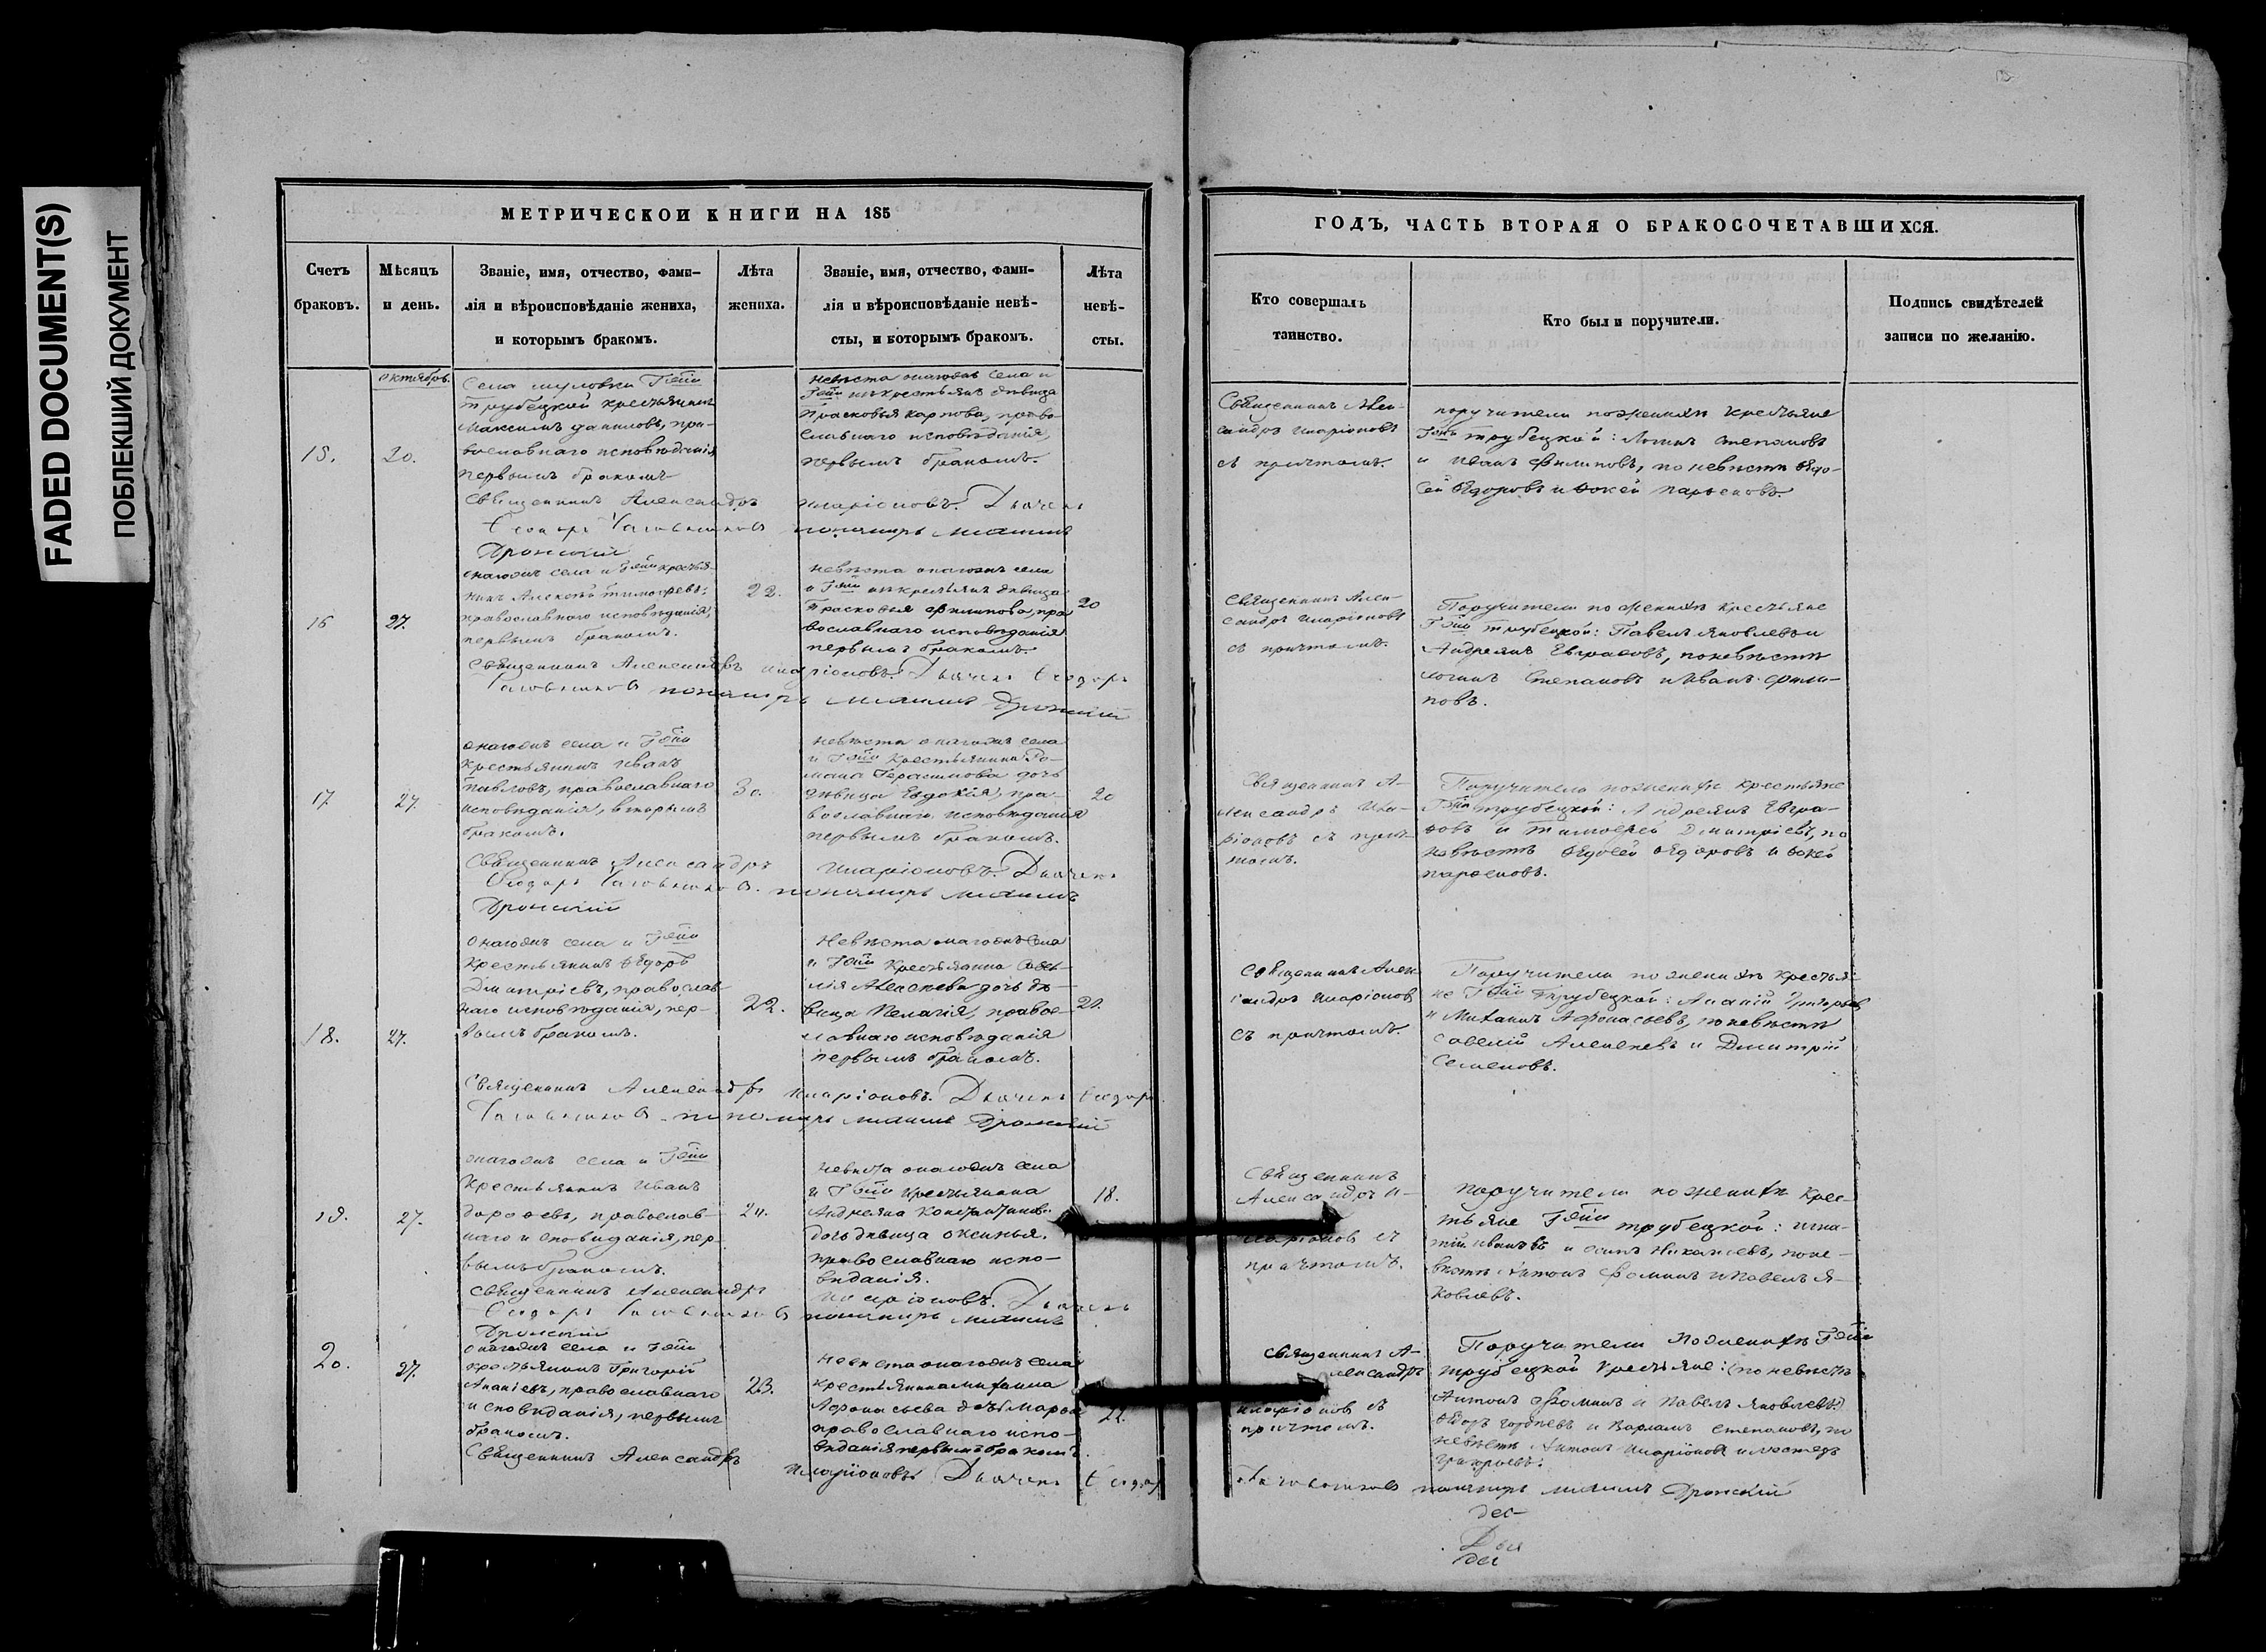 FADED DOCUMENT(S)
ПОБЛЕКШИЙ ДОКУМЕНТ
МЕТРИЧЕСКОИ КНИГИ НА 185
Счетъ браковъ.
Мѣсяцъ и день.
Званіе, имя, отчество, фами-
лія и вѣроисповѣданіе жениха,
и которымъ бракомъ.
Лѣта жениха.
Званіе, имя, отчество, фами-
лія и вѣроисповѣданіе невѣ-
сты, и которымъ бракомъ.
Лѣта невѣ-
сты.
октябрь.
15.
20.
Села
трубецкой крестьянинъ
Максимъ Даниловъ, пра-
вославнаго исповѣданія
первымъ бракомъ
невѣста онагожъ села и
изъ крестьянъ дѣвица
Прасковья Карпова, право
славнаго исповѣданія,
первымъ бракомъ.
Священникъ Александръ Иларіоновъ. Дьячекъ
Ѳеодоръ пономарь
Дронскій
16
27.
онагожъ села и крестья-
нинъ Алексѣй Тимофеевъ,
православнаго исповѣданія,
первымъ бракомъ.
22.
невѣста онагожъ села
и изъ крестьянъ дѣвица
Прасковья Филипова, пра
вославнаго исповѣданія
первымъ бракомъ.
20
Священникъ Александръ Иларіоновъ. Дьячекъ Ѳеодоръ
пономарь Дронскій
17
27.
онагожъ села и
крестьянинъ Иванъ
Павловъ, православнаго
исповѣданія, вторымъ
бракомъ.
30.
невѣста онагожъ села
и крестьянина Ро-
мана Герасимова дочь
дѣвица Евдокія, пра-
вославнаго исповѣданія
первымъ бракомъ.
20
Священникъ Александръ Иларіоновъ. Дьячекъ
Ѳеодоръ пономарь
Дронскій
18.
27.
онагожъ села и
крестьянинъ Ѳедоръ
Дмитріевъ, православ-
наго исповѣданія, пер-
вымъ бракомъ.
22.
Невѣста онагожъ села
и крестьянина Савѣ-
лія Алексѣева дочь дѣ-
вица Пелагія, правос-
лавнаго исповѣданія
первымъ бракомъ.
Священникъ Александръ Иларіоновъ. Дьячекъ Ѳеодоръ
пономарь Дронскій
19.
27.
онагожъ села и
крестьянинъ Иванъ
Дорофеевъ, православ-
наго исповиданія, пер-
вымъ бракомъ.
невиста онагожъ села
и крестьянина
Андреяна Константинова
дочь дѣвица Оксинья.
православнаго испо-
виданія.
18.
Священникъ Александръ Иларіоновъ. Дьячекъ
Ѳеодоръ пономарь
Дронскій
20.
27.
онагожъ села и
крестьянинъ Григорій
Ананіевъ, православнаго
исповиданія, первымъ
бракомъ.
23.
невиста онагожъ села
крестьянина Михаила
Афонасьева дочь Марфа
православнаго испо-
виданія первымъ бракомъ.
22.
Священникъ Александръ
Иларіоновъ Дьячекъ Ѳеодоръ
ГОДЪ, ЧАСТЬ ВТОРАЯ О БРАКОСОЧЕТАВШИХСЯ.
Кто совершалъ
таинство.
Кто были поручители.
Подпись свидѣтелей
записи по желанію.
Священникъ Алек-
сандръ Иларіоновъ
съ причтомъ.
поручители по женихѣ крестьяне
трубецкой: Логинъ Степановъ
и Иванъ Филиповъ, по невѣстѣ Ѳедо-
сей Ѳедоровъ и Фокей Парѳеновъ.
Священникъ Алек-
сандръ Иларіоновъ
съ причтомъ.
Поручители по женихѣ крестьяне
трубецкой: Павелъ Яковлевъ и
Андреянъ Евграфовъ, по невѣстѣ
Логинъ Степановъ и Иванъ Фили-
повъ.
Священникъ А-
лександръ Ила-
ріоновъ съ прич-
томъ.
Поручители по женихѣ крестьяне
трубецкой: Андреянъ Евгра-
фовъ и Тимофей Дмитріевъ, по
невѣстѣ Ѳедосей Ѳедоровъ и Фокей
Парѳеновъ.
Священникъ Алек-
сандръ Иларіоновъ
съ причтомъ.
Поручители по женихѣ крестья-
не трубецкой: Ананій Григорьевъ
и Михаилъ Афонасьевъ, по невѣстѣ
Савелій Алексѣевъ и Дмитрій
Семеновъ.
Священникъ
Александръ И-
ларіоновъ съ
причтомъ.
Поручители по женихѣ крес-
тьяне трубецкой: Игна-
тій Ивановъ и Осипъ Никалаевъ, по не-
вѣстѣ Антонъ Фоминъ и Павелъ Я-
ковлевъ.
Священникъ А-
лександръ
Иларіоновъ съ
причтомъ.
Поручители по женихѣ
трубецкой крестьяне: (по невѣстѣ
Антонъ Фоминъ и Павелъ Яковлевъ)
Ѳедоръ Гордѣевъ и Варламъ Степановъ, по
невѣстѣ Антонъ Иларіоновъ и
пономарь Дронскій